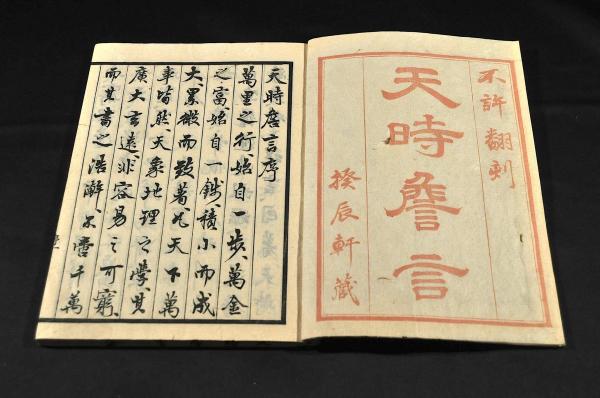 不許翻刻
天時詹言
揆辰軒藏
天時詹言序
萬里之行、始自一歩、萬金
之富、始自一錢、積小而成
大、累微而致著、凡天下萬
事皆然、天象地理之學、其
廣大玄遠、非容易之可窮、
而其書之浩瀚、不啻千萬